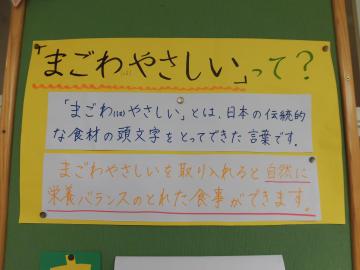 「まごわ(は)やさしい」って？
「まごわ(は)やさしい」とは、日本の伝統的
な食材の頭文字をとってできた言葉です。
まごわやさしいを取り入れると自然に
栄養バランスのとれた食事ができます。